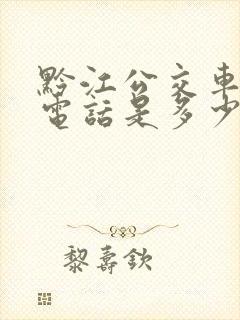 黔江公交車
電話是多少
黎壽欽